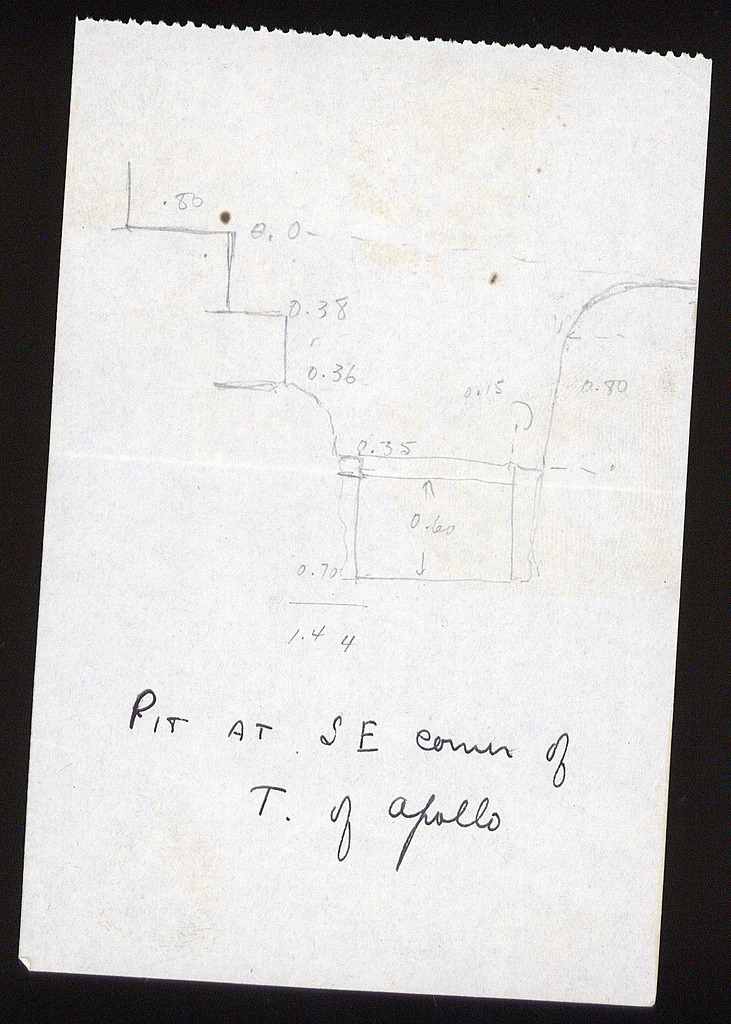 .80
0.0
0.38
0.36
0.80
0.15
0.35
0.60
0.70
1.44
PIT AT SE corner of
T. of Apollo